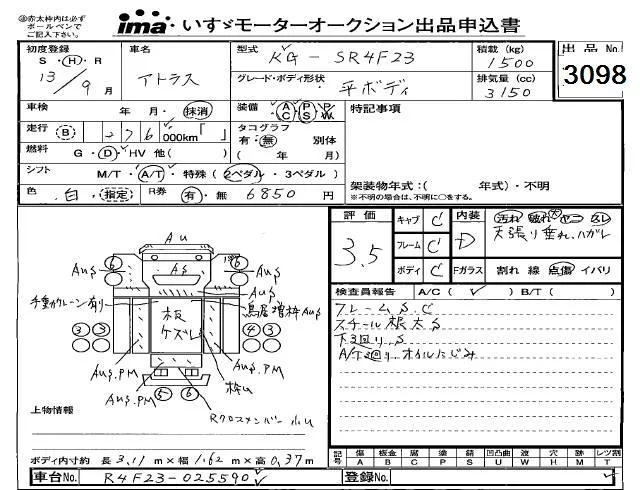 ㊟赤太枠内は必ず
ボールペンで
ご記入下さい。
ima いすゞモーターオークション出品申込書
初度登録 車名 型式 KG-SR4F23 積載 (kg) 1500 出品No.
S・H・R 13/9月 アトラス グレード・ボディ形状 平ボディ 排気量 (cc) 3150 3098
車検 年・月・抹消 装備 A/C P/S P/W 特記事項
走行 (B) 276,000km「 」 タコグラフ 有・無 別体
燃料 G・D・HV 他( ) ( 年 月)
シフト M/T・A/T・特殊 (2ペダル・3ペダル) 架装物年式:( 年式)・不明
色 白・指定 R券 有・無 6850 円 ※不明の場合は、不明に○をする。
評価 3.5 キャブ C 内装 D 汚れ 破れ 大 ヤニ スレ
天張り垂れ、ハガレ
フレーム C
ボディ C Fガラス 割れ 線 点傷 イバリ
検査員報告 A/C ( ✓ ) B/T ( )
フレームS.C
スチール根太S
下回り.S
A/T回り.オイルにじみ
Au
AuS 6 AS 6 AuS
手動クレーン有り 鳥居増枠AuS
板ケズレ
3 3 4 3
AuS.PM AuS.PM 枠U
5 6
Rクロスメンバー小U
上物情報
ボディ内寸約 長 3.11 m×幅 1.62 m×高 0.37 m
記号 傷 A 板金 B 腐 C 塗 P 錆 S 凹凸曲 U 波 W 穴 H 跡 M レツ割 T
車台No. R4F23-025590 登録No.